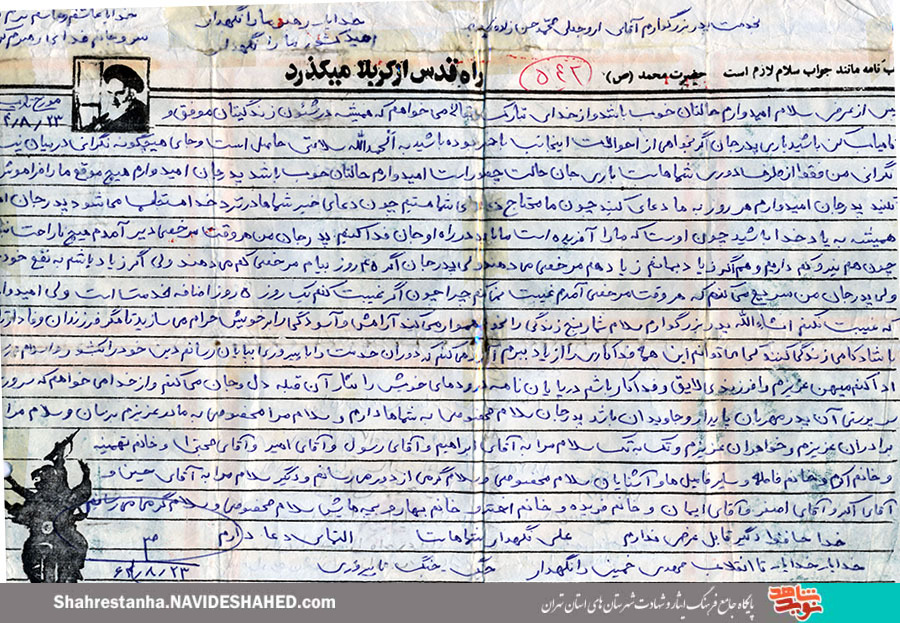 خدمت پدر بزرگوارم آقای
خدایا رهبر ما را نگهدار
امید کشور ما را نگهدار
جواب نامه مانند جواب سلام لازم است حضرت محمد (ص)
۵۶۲
راه قدس از کربلا میگذرد
مورخ تاریخ
۶۴/۸/۲۳
پس از عرض سلام امیدوارم حالتان خوب باشد و از خدای تبارک تعالی می خواهم که همیشه در شئون زندگیتان موفق و
کامیاب باشید باری پدرجان اگر بخواهی از احوالات اینجانب باخبر بوده باشید به الحمدالله سلامتی حاصل است و جای هیچگونه نگرانی در میان نیست
نگرانی من فقط از دوری شماهاست باری جان حالت چطور است امیدوارم حالتان خوب باشد پدرجان امیدوارم هیچ موقع ما را فراموش
نکنید پدرجان امیدوارم هر روز به ما دعا کنید چون ما محتاج دعای شما هستیم چون دعای خیر شما در نزد خدا مستجاب می شود پدرجان
همیشه به یاد خدا باشید چون اوست که ما را آفریده است ما باید در راه او جان فدا کنیم پدرجان من هر وقت مرخصی دیر آمدم هیچ ناراحت
چون هم نیرو کم داریم و هم اگر زیاد بمانم زیاد هم مرخصی می دهند ولی پدرجان اگر ۴۵ روز بیام مرخصی کم می دهند ولی اگر زیاد باشم به نفع خود
ولی پدرجان من سریع می کنم که هر وقت مرخصی آمدم غیبت نمی کنم چرا چون اگر غیبت کنم یک روز ۵ روز اضافه خدمت است ولی امیدوارم
که غیبت نکنم انشاءالله پدر بزرگوارم سلام شما رنج زندگی را بخود هموار می کنید آرامش و آسودگی را بر خویش حرام می سازید تا مگر فرزندان وفادار
با شادکامی زندگی کنند کی می توانم این همه فداکاری را از یاد ببرم آرزو می کنم که دوران خدمت را با پیروزی بپایان رسانم دین خود را بکشور و اسلام
ادا کنم میهن عزیزم را فرزندی لایق و فداکار باشم در پایان نامه درودهای خویش را نثار آن قبله دل و جان می کنم و از خدا می خواهم که سرور
سرپرستی آن پدر مهربان پایدار و جاویدان باشد پدرجان سلام مخصوص به شماها دارم و سلام مرا مخصوصی به مادر عزیزم برسان و سلام مرا
برادران عزیزم و خواهران عزیزم و تک به تک سلام مرا به آقای ابراهیم و آقای رسول و آقای امیر و آقای مجتبی و خانم تهمینه
و خانم اکرم و خانم فاطمه و سایر فامیل ها و آشنایان سلام مخصوصی و سلام گرمی از دور می رسانم و دیگر سلام مرا به آقای حسین و
آقای اکبر و آقای اصغر و آقای ایمان و خانم فریده و خانم اختر و خانم بهار سلام مخصوصی و سلام گرمی می رسانم
خدا حافظ دیگر قابل عرض ندارم علی نگهدار شماهاست التماس دعا دارم
خدایا خدایا تا انقلاب مهدی خمینی را نگهدار جنگ جنگ تا پیروزی
۶۴/۸/۲۳
Shahrestanha.NAVIDESHAHED.com
پایگاه جامع فرهنگ ایثار و شهادت شهرستان های استان تهران
نوید شاهد